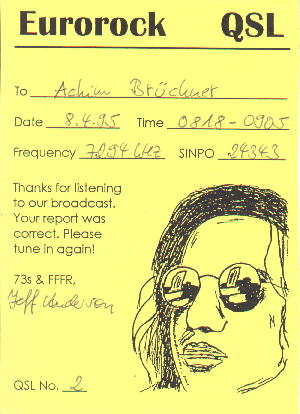 Eurorock QSL
To Achim Brückner
Date 8.4.95 Time 0818-0905
Frequency 7294 kHz SINPO 24343
Thanks for listening
to our broadcast.
Your report was
correct. Please
tune in again!
73s & FFFR,
Jeff Anderson
QSL No. 2